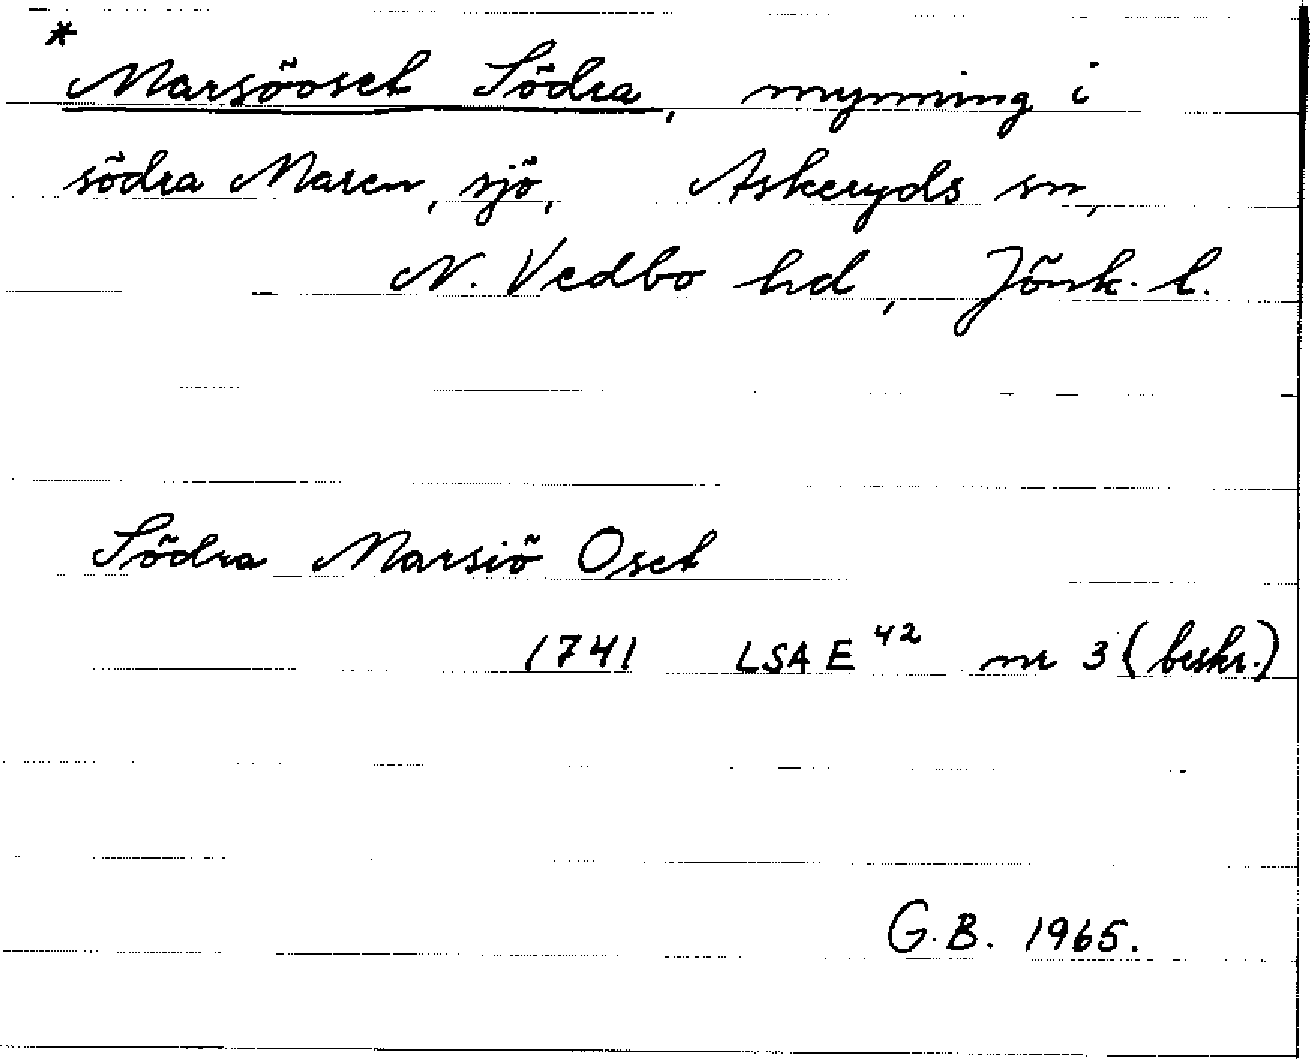 *
Marsöoset Södra, mynning i
södra Maren, sjö, Askeryds sn,
N. Vedbo hd, Jönk. l.
Södra Marsiö Oset
1741 LSA E 42 nr 3 (beskr.)
G.B. 1965.